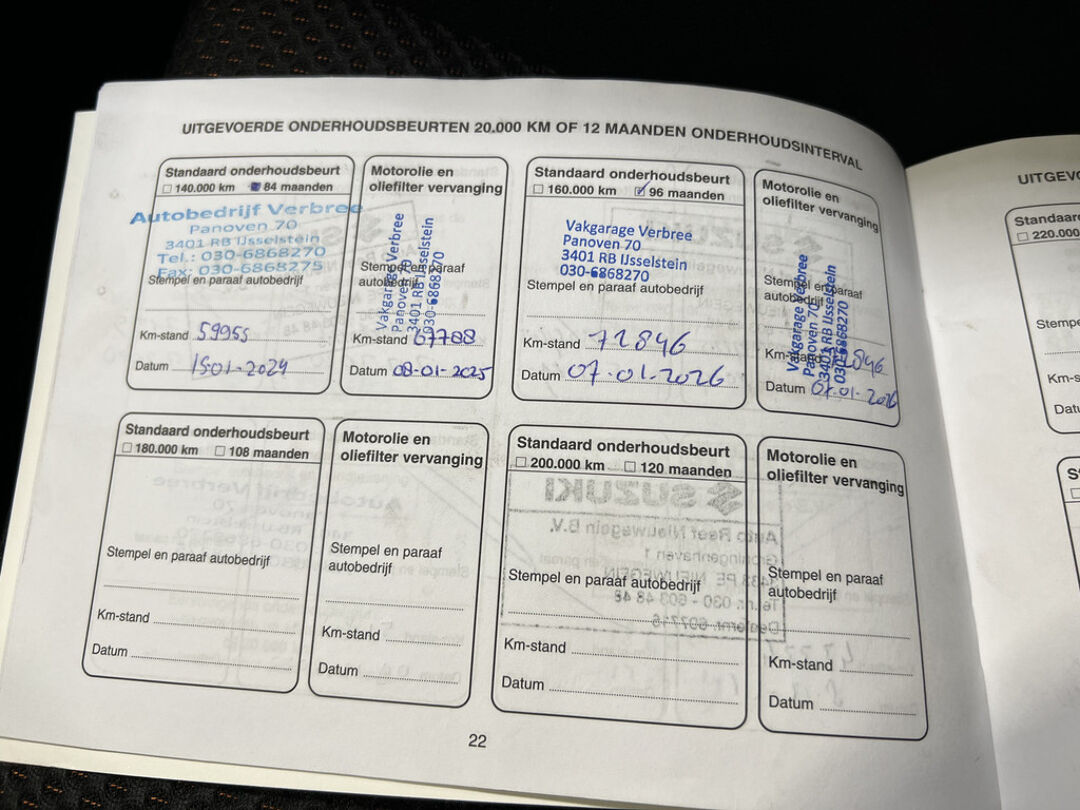 UITGEVOERDE ONDERHOUDSBEURTEN 20.000 KM OF 12 MAANDEN ONDERHOUDSINTERVAL
Standaard onderhoudsbeurt
140.000 km 84 maanden
Autobedrijf Verbree
Panoven 70
3401 RB IJsselstein
Tel.: 030-6868270
Fax: 030-6868275
Stempel en paraaf autobedrijf
Km-stand 59955
Datum 15-01-2024
Motorolie en
oliefilter vervanging
Vakgarage Verbree
Panoven 70
3401 RB IJsselstein
030-6868270
Stempel en paraaf
autobedrijf
Km-stand 67788
Datum 08-01-2025
Standaard onderhoudsbeurt
160.000 km 96 maanden
Vakgarage Verbree
Panoven 70
3401 RB IJsselstein
030-6868270
Stempel en paraaf autobedrijf
Km-stand 72846
Datum 07-01-2026
Motorolie en
oliefilter vervanging
Vakgarage Verbree
Panoven 70
3401 RB IJsselstein
030-6868270
Stempel en paraaf
autobedrijf
Datum 07-01-2026
Standaard onderhoudsbeurt
180.000 km 108 maanden
Stempel en paraaf autobedrijf
Km-stand
Datum
Motorolie en
oliefilter vervanging
Stempel en paraaf
autobedrijf
Km-stand
Datum
Standaard onderhoudsbeurt
200.000 km 120 maanden
Stempel en paraaf autobedrijf
Km-stand
Datum
Motorolie en
oliefilter vervanging
Stempel en paraaf
autobedrijf
Km-stand
Datum
22
220.000